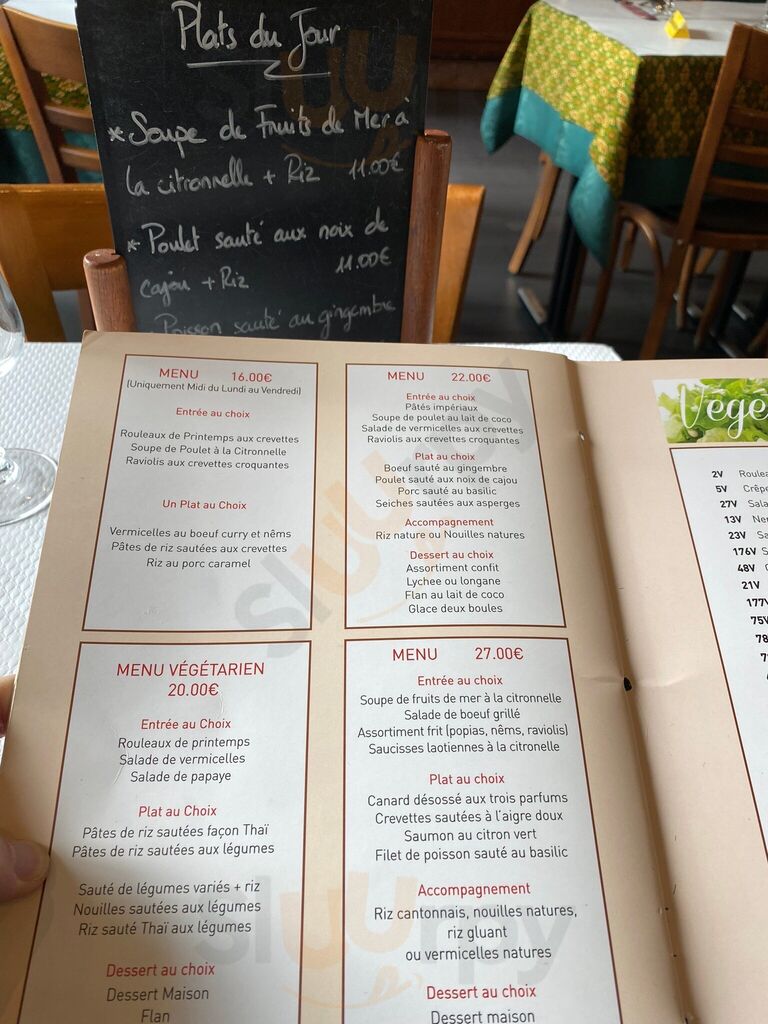 Plats du Jour
*Soupe de Fruits de Mer à
la citronnelle + Riz 11.00€
*Poulet sauté aux noix de
cajou + Riz 11.00€
Poisson sauté au gingembre
MENU 16.00€
(Uniquement Midi du Lundi au Vendredi)
Entrée au choix
Rouleaux de Printemps aux crevettes
Soupe de Poulet à la Citronnelle
Raviolis aux crevettes croquantes
Un Plat au Choix
Vermicelles au boeuf curry et nêms
Pâtes de riz sautées aux crevettes
Riz au porc caramel
MENU 22.00€
Entrée au choix
Pâtés impériaux
Soupe de poulet au lait de coco
Salade de vermicelles aux crevettes
Raviolis aux crevettes croquantes
Plat au choix
Boeuf sauté au gingembre
Poulet sauté aux noix de cajou
Porc sauté au basilic
Seiches sautées aux asperges
Accompagnement
Riz nature ou Nouilles natures
Dessert au choix
Assortiment confit
Lychee ou longane
Flan au lait de coco
Glace deux boules
MENU VÉGÉTARIEN
20.00€
Entrée au Choix
Rouleaux de printemps
Salade de vermicelles
Salade de papaye
Plat au Choix
Pâtes de riz sautées façon Thaï
Pâtes de riz sautées aux légumes
Sauté de légumes variés + riz
Nouilles sautées aux légumes
Riz sauté Thaï aux légumes
Dessert au choix
Dessert Maison
Flan
MENU 27.00€
Entrée au choix
Soupe de fruits de mer à la citronnelle
Salade de boeuf grillé
Assortiment frit (popias, nêms, raviolis)
Saucisses laotiennes à la citronelle
Plat au choix
Canard désossé aux trois parfums
Crevettes sautées à l'aigre doux
Saumon au citron vert
Filet de poisson sauté au basilic
Accompagnement
Riz cantonnais, nouilles natures,
riz gluant
ou vermicelles natures
Dessert au choix
Dessert maison
Végé
2V Roulea
5V Crêpe
27V Sala
13V Ner
23V Sa
176V S
48V
21V
177V
75V
78
sluurpy
sluurpy